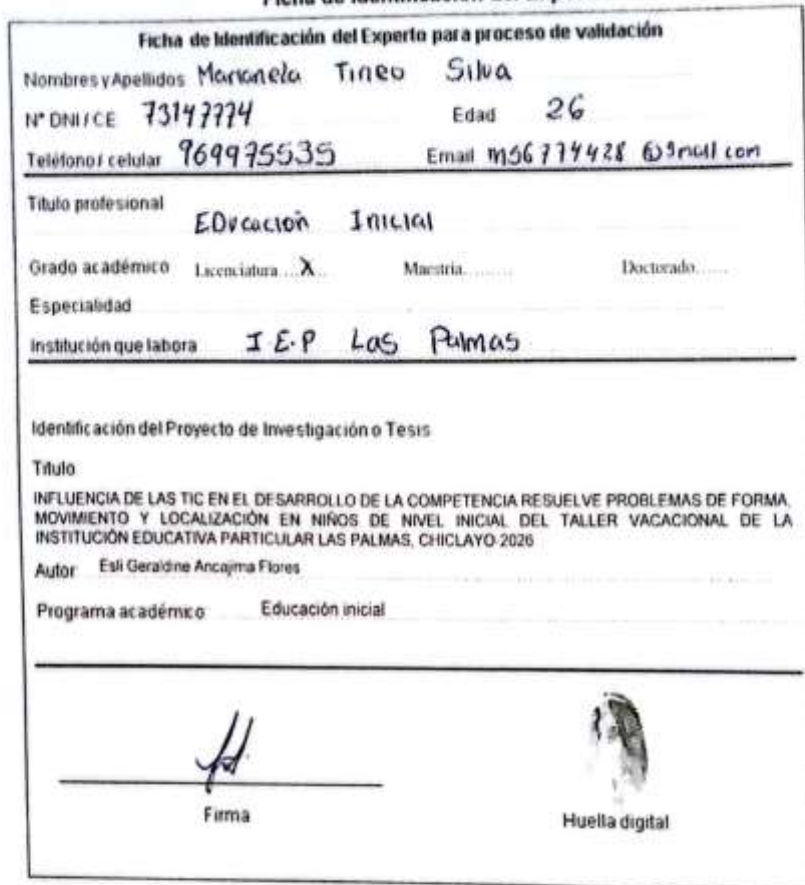 Ficha de Identificación del Experto para proceso de validación
Nombres y Apellidos Marianela Tineo Silva
N° DNI / CE 73147774 Edad 26
Teléfono / celular 969975535 Email ms6774428@gmail.com
Título profesional
EDucación Inicial
Grado académico Licenciatura....X.. Maestría......... Doctorado......
Especialidad
Institución que labora I.E.P Las Palmas
Identificación del Proyecto de Investigación o Tesis
Título
INFLUENCIA DE LAS TIC EN EL DESARROLLO DE LA COMPETENCIA RESUELVE PROBLEMAS DE FORMA,
MOVIMIENTO Y LOCALIZACIÓN EN NIÑOS DE NIVEL INICIAL DEL TALLER VACACIONAL DE LA
INSTITUCIÓN EDUCATIVA PARTICULAR LAS PALMAS, CHICLAYO-2026
Autor Esli Geraldine Ancajima Flores
Programa académico Educación inicial
Firma
Huella digital